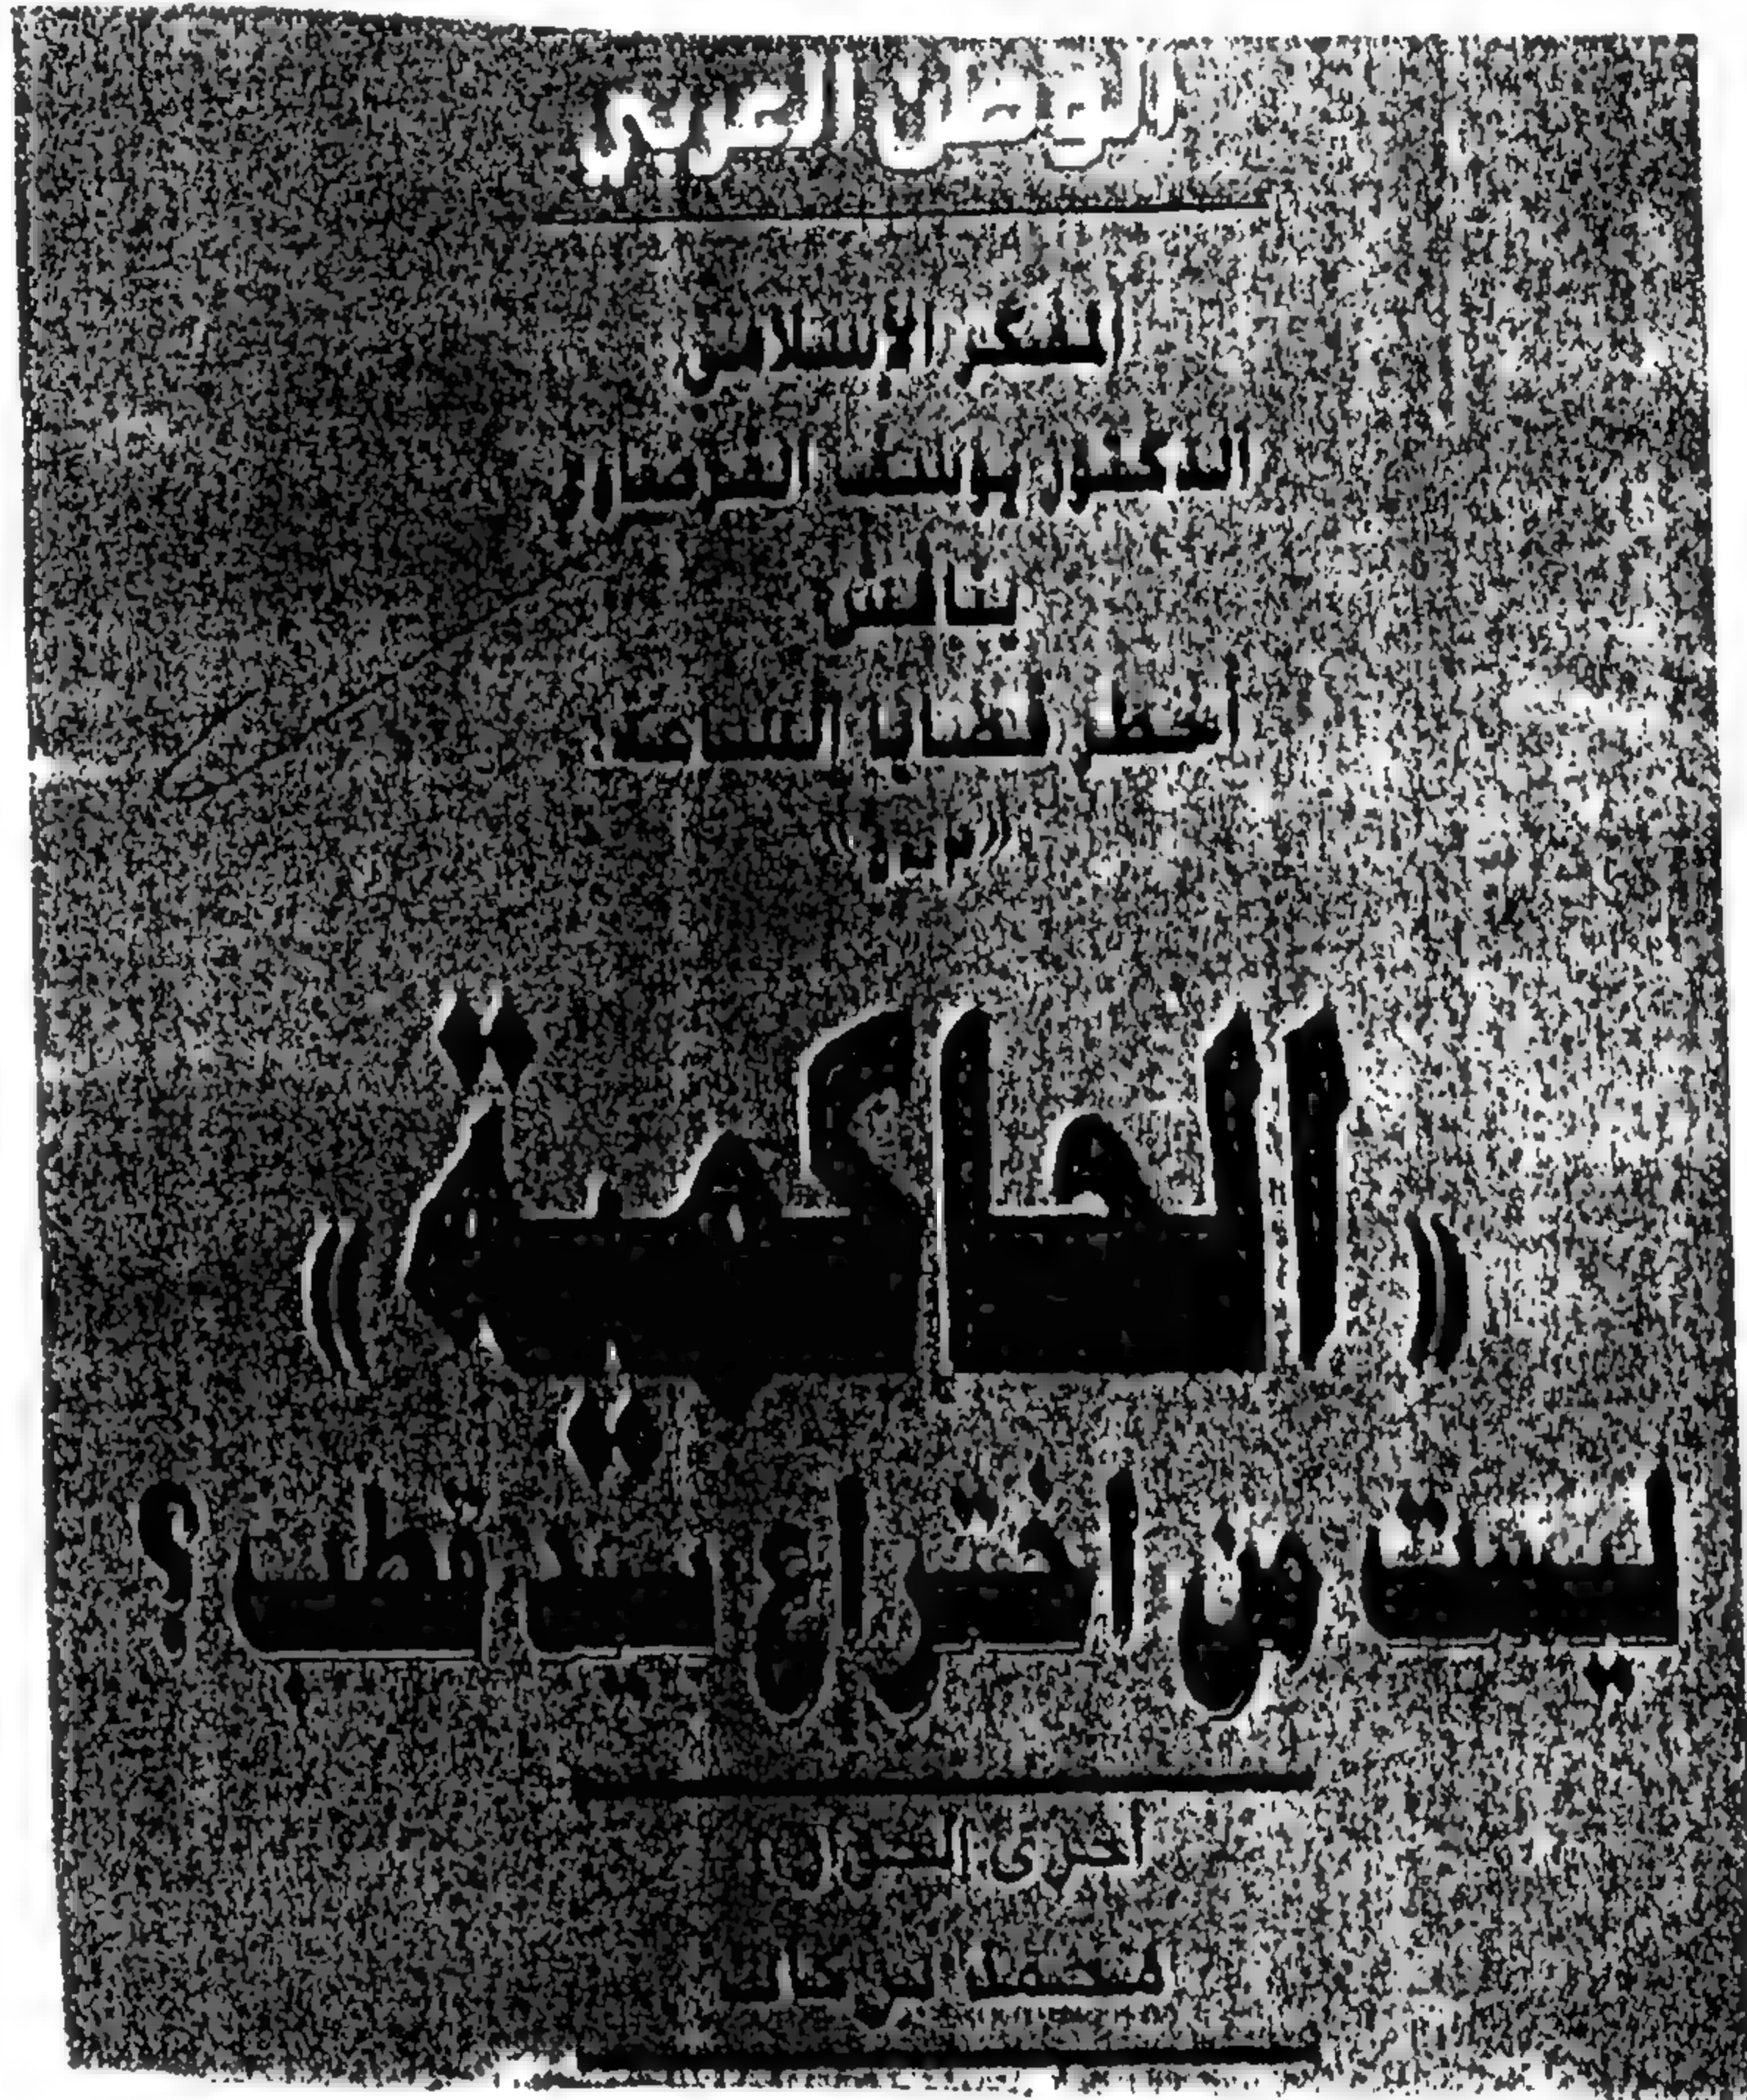 الوطن العربي
المفكر الإسلامي
الدكتور يوسف القرضاوي
يناقش
أخطر قضايا الساعة
« الحاكمية »
ليست من اختراع سيد قطب ؟
أجرى الحوار
محمد